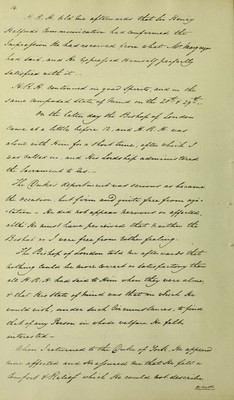 H.R.H. told me afterwards that Sir Henry
Halford's Communication had confirmed the
Impression He had received from what Mr Macgregor
had said, and He expressed Himself perfectly
satisfied with it.
H.R.H. continued in good Spirits, and in the
same composed State of mind on the 28th & 29th.
On the latter day the Bishop of London
came at a little before 12, and H.R.H. was
alone with Him for a short time, after which I
was called in, and His Lordship administered
the Sacrament to us.
The Duke's deportment was serious as became
the occasion but firm and quite free from agi-
tation. He did not appear nervous or affected,
altho' He must have perceived that neither the
Bishop or I were free from either feeling.
The Bishop of London told me afterwards that
nothing could be more correct or satisfactory than
all H.R.H. had said to Him when they were alone,
& that His State of mind was that in which He
could wish, under such Circumstances, to find
that of any Person in whose welfare He felt
interested.
When I returned to the Duke of York, He appeared
more affected and He assured me that He felt a
Comfort & Relief which He could not describe